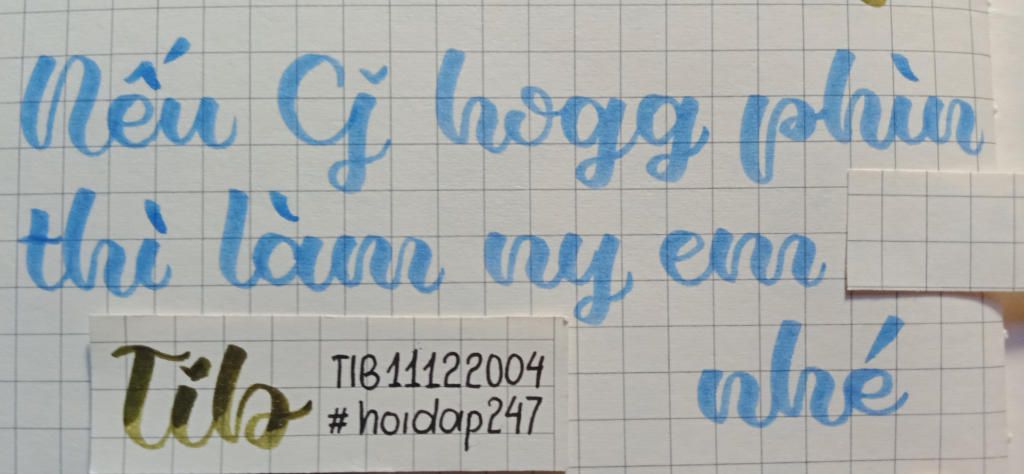 Nếu Cj̆ hogg phìn
thì làm ny em
nhé
Tib
TIB11122004
#hoidap247